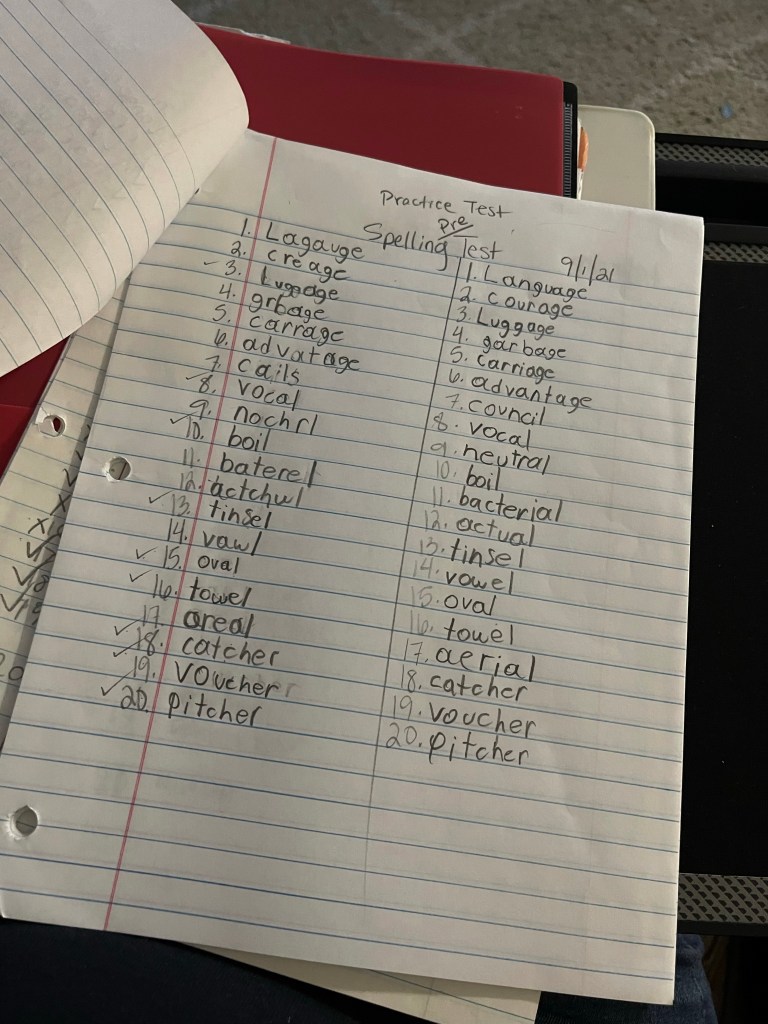 Practice Test
Pre
Spelling Test 9/1/21
1. Lagauge
2. creage
✓ 3. Luggage
4. grbage
5. carrage
6. advatage
7. cails
✓ 8. vocal
9. nochrl
✓ 10. boil
11. baterel
12. actchwl
✓ 13. tinsel
14. vawl
✓ 15. oval
✓ 16. towel
17. areal
✓ 18. catcher
✓ 19. Voucher
✓ 20. pitcher
1. Language
2. courage
3. Luggage
4. garbage
5. carriage
6. advantage
7. council
8. vocal
9. neutral
10. boil
11. bacterial
12. actual
13. tinsel
14. vowel
15. oval
16. towel
17. aerial
18. catcher
19. voucher
20. pitcher